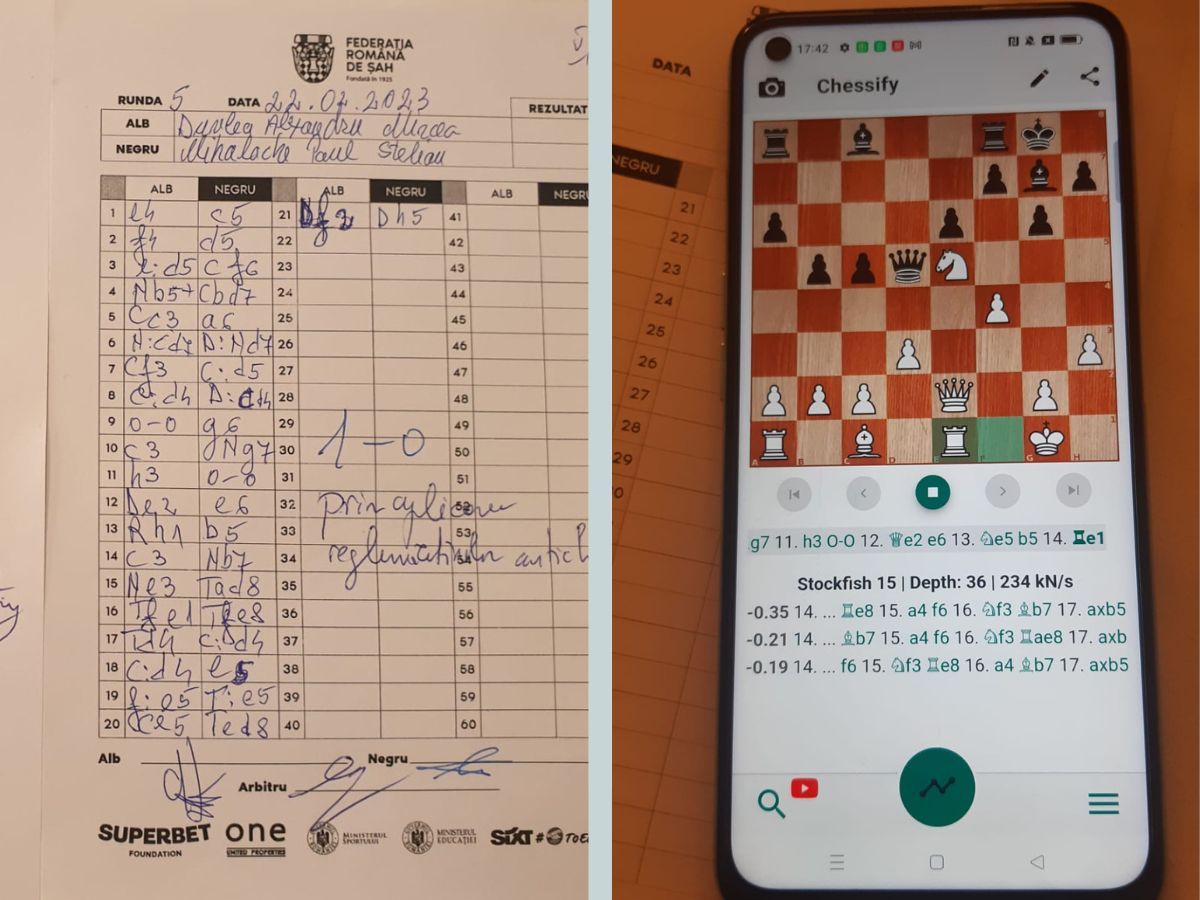 FEDERAȚIA
ROMÂNĂ
DE ȘAH
Fondată în 1925
RUNDA 5 DATA 22.04.2023
REZULTAT
ALB Alexandru Mircea
NEGRU Mihalache Paul Stelian
ALB NEGRU ALB NEGRU ALB NEGRU
1 e4 c5 21 Df2 Dh5 41
2 f4 d5 22 42
3 e:d5 Cf6 23 43
4 Nb5+ Cbd7 24 44
5 Cc3 a6 25 45
6 N:Cd7 D:Nd7 26 46
7 Cf3 C:d5 27 47
8 C:d4 D:Cd4 28 48
9 0-0 g6 29 49
10 c3 Ng7 30 1-0 50
11 h3 0-0 31 51
12 De2 e6 32 prin 52
13 Rh1 b5 33 53
14 C3 Nb7 34 54
15 Ne3 Tad8 35 55
16 Tfe1 Tfe8 36 56
17 Td4 C:Dd4 37 57
18 C:d4 e5 38 58
19 f:e5 T:e5 39 59
20 Cce5 Ted8 40 60
Alb Negru
Arbitru
SUPERBET
FOUNDATION
one
UNITED PROPERTIES
MINISTERUL
SPORTULUI
MINISTERUL
EDUCAȚIEI
SIXT #
DATA
NEGRU
21
22
23
24
25
26
27
28
29
17:42
Chessify
8
7
6
5
4
3
2
1
A B C D E F G H
g7 11. h3 O-O 12. ♕e2 e6 13. ♘e5 b5 14. ♖e1
Stockfish 15 | Depth: 36 | 234 kN/s
-0.35 14. ... ♖e8 15. a4 f6 16. ♘f3 ♗b7 17. axb5
-0.21 14. ... ♗b7 15. a4 f6 16. ♘f3 ♖ae8 17. axb
-0.19 14. ... f6 15. ♘f3 ♖e8 16. a4 ♗b7 17. axb5